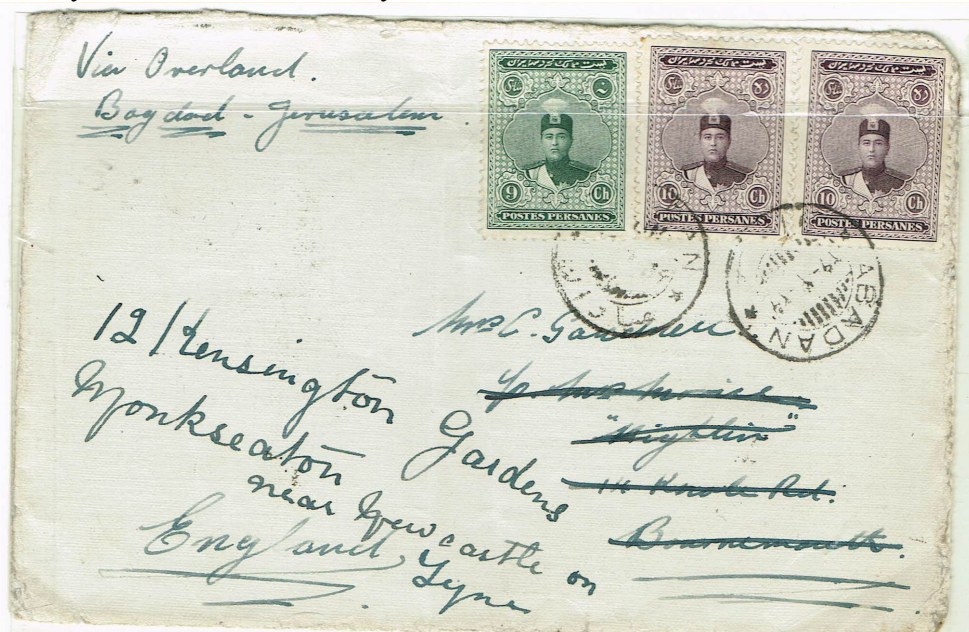 Via Overland.
Bagdad - Jerusalem
9 Ch
POSTES PERSANES
10 Ch
POSTES PERSANES
10 Ch
POSTES PERSANES
ABADAN
Mrs C.
"
14 Knole Rd.
Bournemouth.
12 Kensington
Gardens
Monkseaton
near Newcastle on
Tyne
England